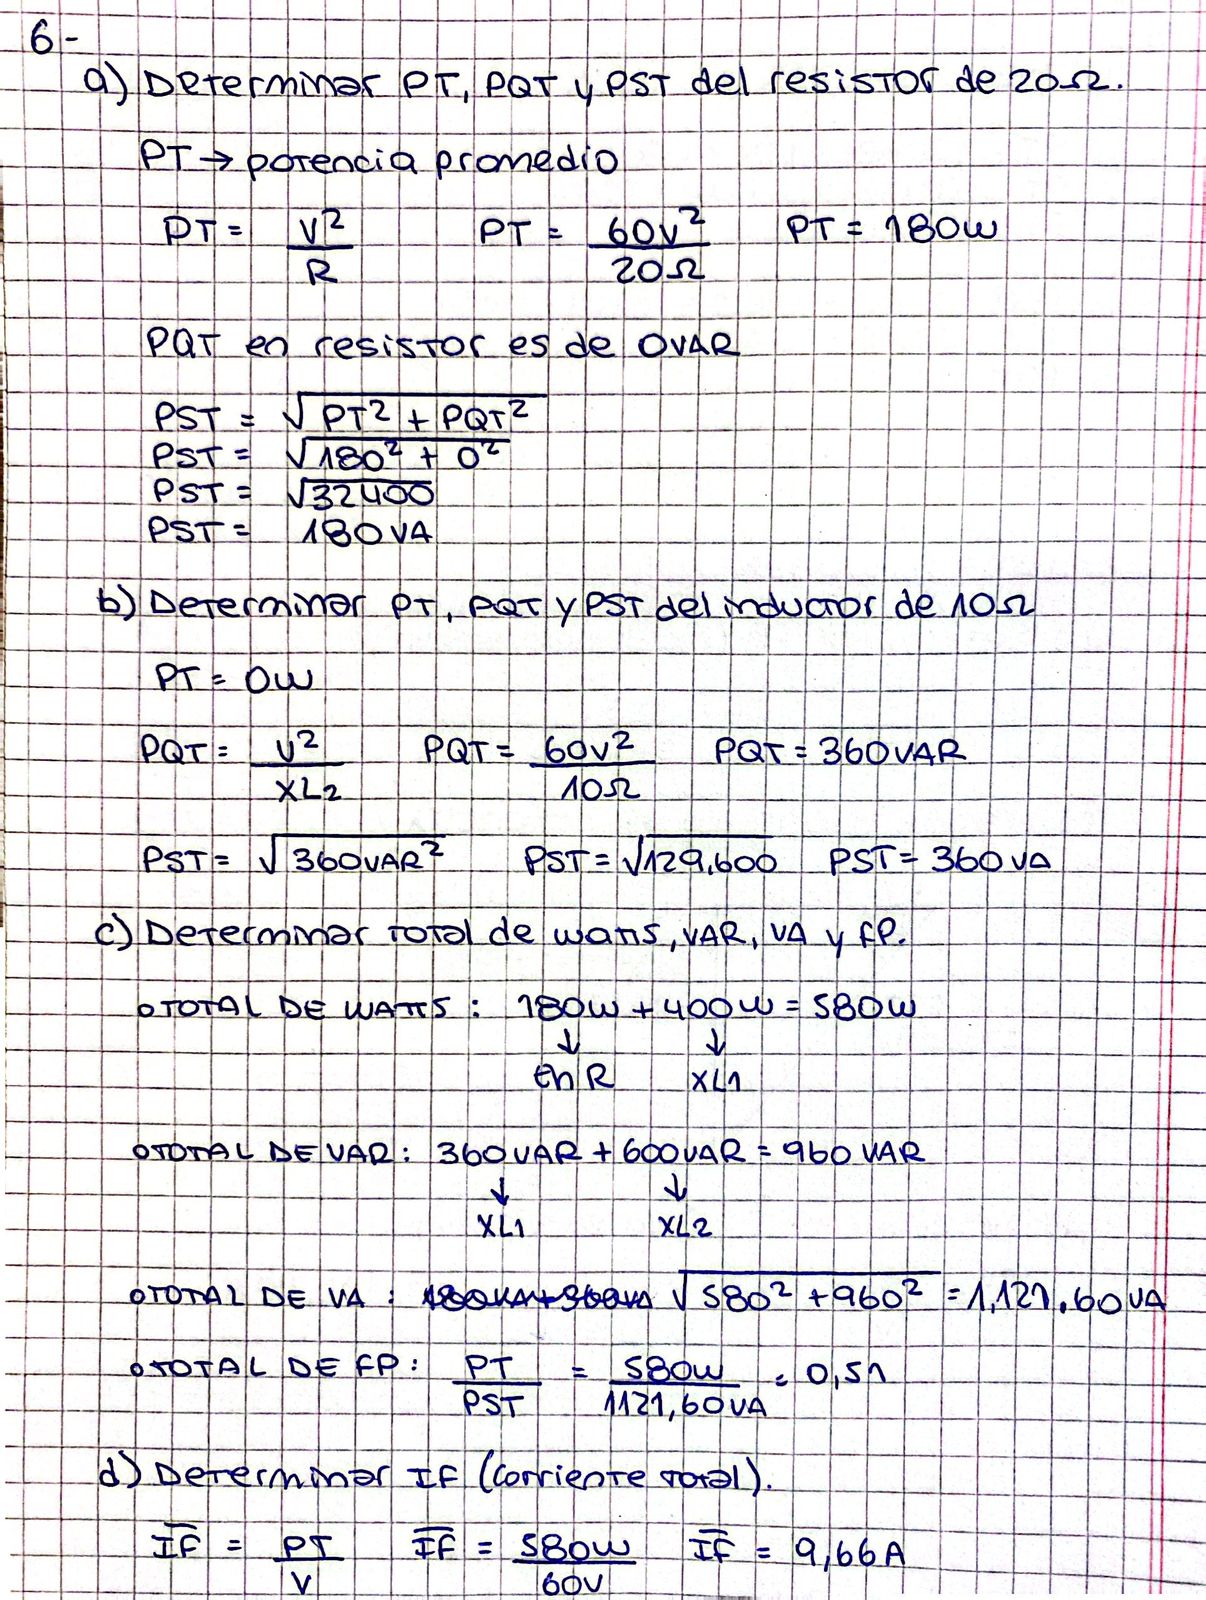 6-
a) Determinar PT, PQT y PST del resistor de 20Ω.
PT → potencia promedio
PT = V² / R PT = 60V² / 20Ω PT = 180W
PQT en resistor es de 0VAR
PST = √PT² + PQT²
PST = √180² + 0²
PST = √32400
PST = 180VA
b) Determinar PT, PQT y PST del inductor de 10Ω
PT = 0W
PQT = V² / XL2 PQT = 60V² / 10Ω PQT = 360VAR
PST = √360VAR² PST = √129,600 PST = 360VA
c) Determinar total de watts, VAR, VA y FP.
O TOTAL DE WATTS : 180W + 400W = 580W
↓ ↓
En R XL1
O TOTAL DE VAR : 360VAR + 600VAR = 960 VAR
↓ ↓
XL1 XL2
O TOTAL DE VA : 180VA + 360VA √580² + 960² = 1,121.60VA
O TOTAL DE FP : PT / PST = 580W / 1121,60VA = 0,51
d) Determinar IF (corriente total).
IF = PT / V IF = 580W / 60V IF = 9,66A